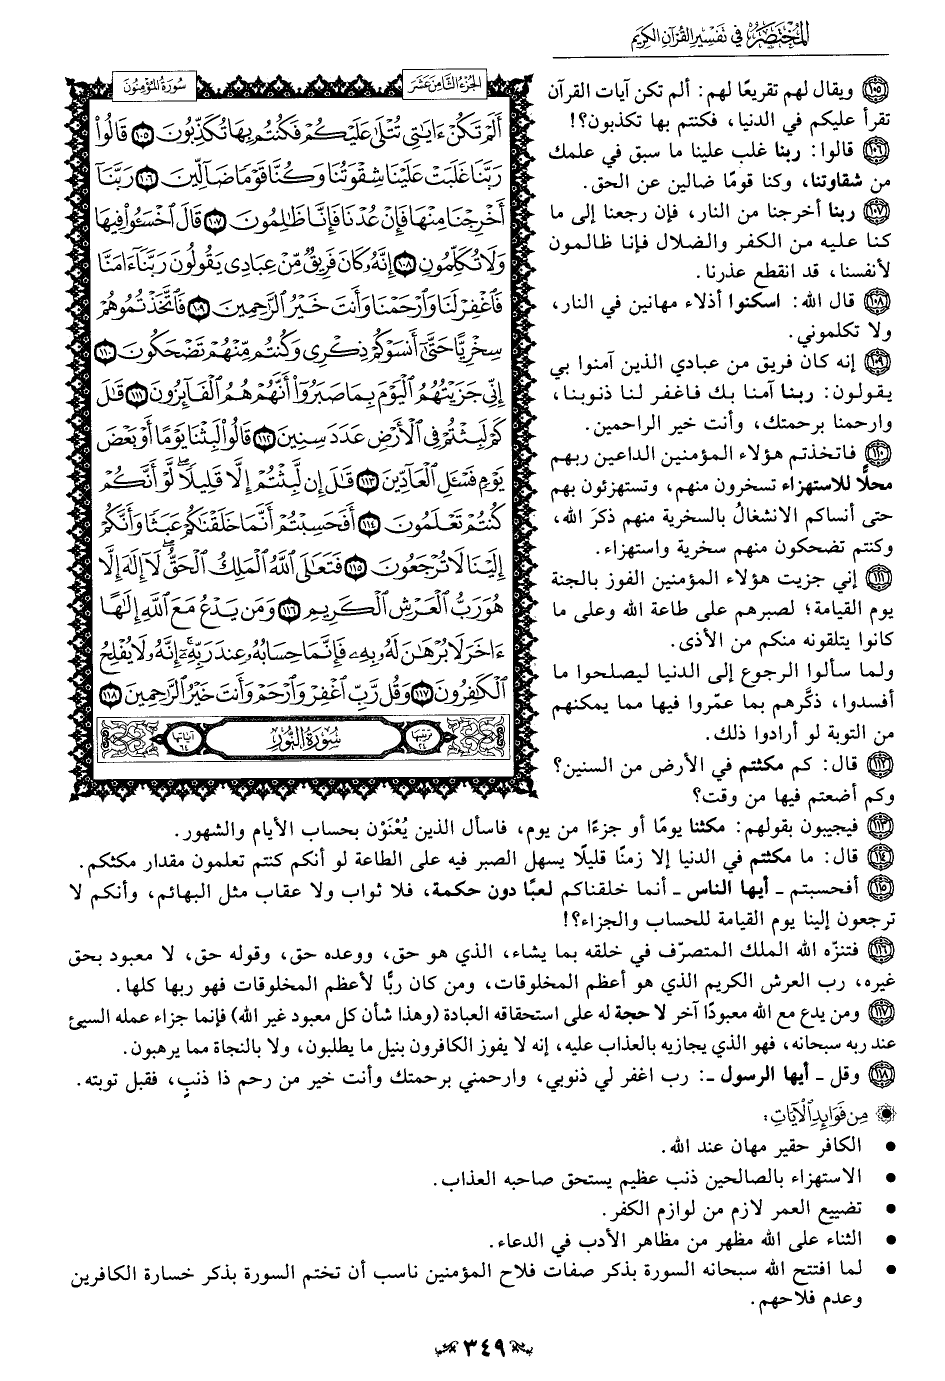 المختصر في تفسير القرآن الكريم
الجزء الثامن عشر
سورة المؤمنون
أَلَمْ تَكُنْ ءَايَٰتِي تُتْلَىٰ عَلَيْكُمْ فَكُنتُم بِهَا تُكَذِّبُونَ ١٠٥ قَالُواْ
رَبَّنَا غَلَبَتْ عَلَيْنَا شِقْوَتُنَا وَكُنَّا قَوْمًا ضَآلِّينَ ١٠٦ رَبَّنَآ
أَخْرِجْنَا مِنْهَا فَإِنْ عُدْنَا فَإِنَّا ظَٰلِمُونَ ١٠٧ قَالَ ٱخْسَـُٔواْ فِيهَا
وَلَا تُكَلِّمُونِ ١٠٨ إِنَّهُۥ كَانَ فَرِيقٌ مِّنْ عِبَادِي يَقُولُونَ رَبَّنَآ ءَامَنَّا
فَٱغْفِرْ لَنَا وَٱرْحَمْنَا وَأَنتَ خَيْرُ ٱلرَّٰحِمِينَ ١٠٩ فَٱتَّخَذْتُمُوهُمْ
سِخْرِيًّا حَتَّىٰٓ أَنسَوْكُمْ ذِكْرِي وَكُنتُم مِّنْهُمْ تَضْحَكُونَ ١١٠
إِنِّي جَزَيْتُهُمُ ٱلْيَوْمَ بِمَا صَبَرُوٓاْ أَنَّهُمْ هُمُ ٱلْفَآئِزُونَ ١١١ قَٰلَ
كَمْ لَبِثْتُمْ فِي ٱلْأَرْضِ عَدَدَ سِنِينَ ١١٢ قَالُواْ لَبِثْنَا يَوْمًا أَوْ بَعْضَ
يَوْمٍ فَسْـَٔلِ ٱلْعَآدِّينَ ١١٣ قَٰلَ إِن لَّبِثْتُمْ إِلَّا قَلِيلًا لَّوْ أَنَّكُمْ
كُنتُمْ تَعْلَمُونَ ١١٤ أَفَحَسِبْتُمْ أَنَّمَا خَلَقْنَٰكُمْ عَبَثًا وَأَنَّكُمْ
إِلَيْنَا لَا تُرْجَعُونَ ١١٥ فَتَعَٰلَى ٱللَّهُ ٱلْمَلِكُ ٱلْحَقُّ لَآ إِلَٰهَ إِلَّا
هُوَ رَبُّ ٱلْعَرْشِ ٱلْكَرِيمِ ١١٦ وَمَن يَدْعُ مَعَ ٱللَّهِ إِلَٰهًا
ءَاخَرَ لَا بُرْهَٰنَ لَهُۥ بِهِۦ فَإِنَّمَا حِسَابُهُۥ عِندَ رَبِّهِۦٓ إِنَّهُۥ لَا يُفْلِحُ
ٱلْكَٰفِرُونَ ١١٧ وَقُل رَّبِّ ٱغْفِرْ وَٱرْحَمْ وَأَنتَ خَيْرُ ٱلرَّٰحِمِينَ ١١٨
ترتيبها ٢٤
سورة النور
آياتها ٦٤
١٠٥ ويقال لهم تقريعًا لهم: ألم تكن آيات القرآن
تقرأ عليكم في الدنيا، فكنتم بها تكذبون؟!
١٠٦ قالوا: ربنا غلب علينا ما سبق في علمك
من شقاوتنا، وكنا قومًا ضالين عن الحق.
١٠٧ ربنا أخرجنا من النار، فإن رجعنا إلى ما
كنا عليه من الكفر والضلال فإنا ظالمون
لأنفسنا، قد انقطع عذرنا.
١٠٨ قال الله: اسكنوا أذلاء مهانين في النار،
ولا تكلموني.
١٠٩ إنه كان فريق من عبادي الذين آمنوا بي
يقولون: ربنا آمنا بك فاغفر لنا ذنوبنا،
وارحمنا برحمتك، وأنت خير الراحمين.
١١٠ فاتخذتم هؤلاء المؤمنين الداعين ربهم
محلًّا للاستهزاء تسخرون منهم، وتستهزئون بهم
حتى أنساكم الانشغالُ بالسخرية منهم ذكرَ الله،
وكنتم تضحكون منهم سخرية واستهزاء.
١١١ إني جزيت هؤلاء المؤمنين الفوز بالجنة
يوم القيامة؛ لصبرهم على طاعة الله وعلى ما
كانوا يتلقونه منكم من الأذى.
ولما سألوا الرجوع إلى الدنيا ليصلحوا ما
أفسدوا، ذكَّرهم بما عمّروا فيها مما يمكنهم
من التوبة لو أرادوا ذلك.
١١٢ قال: كم مكثتم في الأرض من السنين؟
وكم أضعتم فيها من وقت؟
١١٣ فيجيبون بقولهم: مكثنا يومًا أو جزءًا من يوم، فاسأل الذين يُعْنَوْن بحساب الأيام والشهور.
١١٤ قال: ما مكثتم في الدنيا إلا زمنًا قليلًا يسهل الصبر فيه على الطاعة لو أنكم كنتم تعلمون مقدار مكثكم.
١١٥ أفحسبتم ـ أيها الناس ـ أنما خلقناكم لعبًا دون حكمة، فلا ثواب ولا عقاب مثل البهائم، وأنكم لا
ترجعون إلينا يوم القيامة للحساب والجزاء؟!
١١٦ فتنزّه الله الملك المتصرّف في خلقه بما يشاء، الذي هو حق، ووعده حق، وقوله حق، لا معبود بحق
غيره، رب العرش الكريم الذي هو أعظم المخلوقات، ومن كان ربًّا لأعظم المخلوقات فهو ربها كلها.
١١٧ ومن يدع مع الله معبودًا آخر لا حجة له على استحقاقه العبادة (وهذا شأن كل معبود غير الله) فإنما جزاء عمله السيئ
عند ربه سبحانه، فهو الذي يجازيه بالعذاب عليه، إنه لا يفوز الكافرون بنيل ما يطلبون، ولا بالنجاة مما يرهبون.
١١٨ وقل ـ أيها الرسول ـ: رب اغفر لي ذنوبي، وارحمني برحمتك وأنت خير من رحم ذا ذنبٍ، فقبل توبته.
من فوائد الآيات:
• الكافر حقير مهان عند الله.
• الاستهزاء بالصالحين ذنب عظيم يستحق صاحبه العذاب.
• تضييع العمر لازم من لوازم الكفر.
• الثناء على الله مظهر من مظاهر الأدب في الدعاء.
• لما افتتح الله سبحانه السورة بذكر صفات فلاح المؤمنين ناسب أن تختم السورة بذكر خسارة الكافرين
وعدم فلاحهم.
٣٤٩